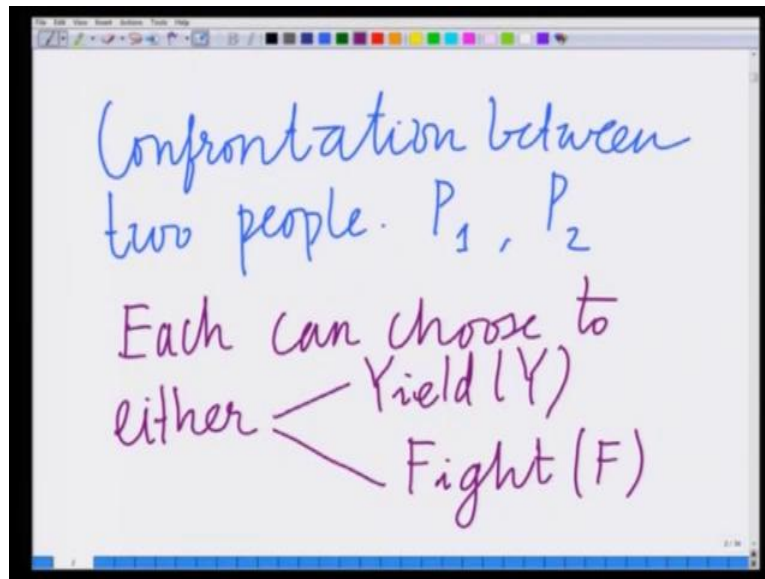 File Edit View Insert Actions Tools Help
Confrontation between
two people. P1, P2
Each can choose to
either Yield (Y)
Fight (F)